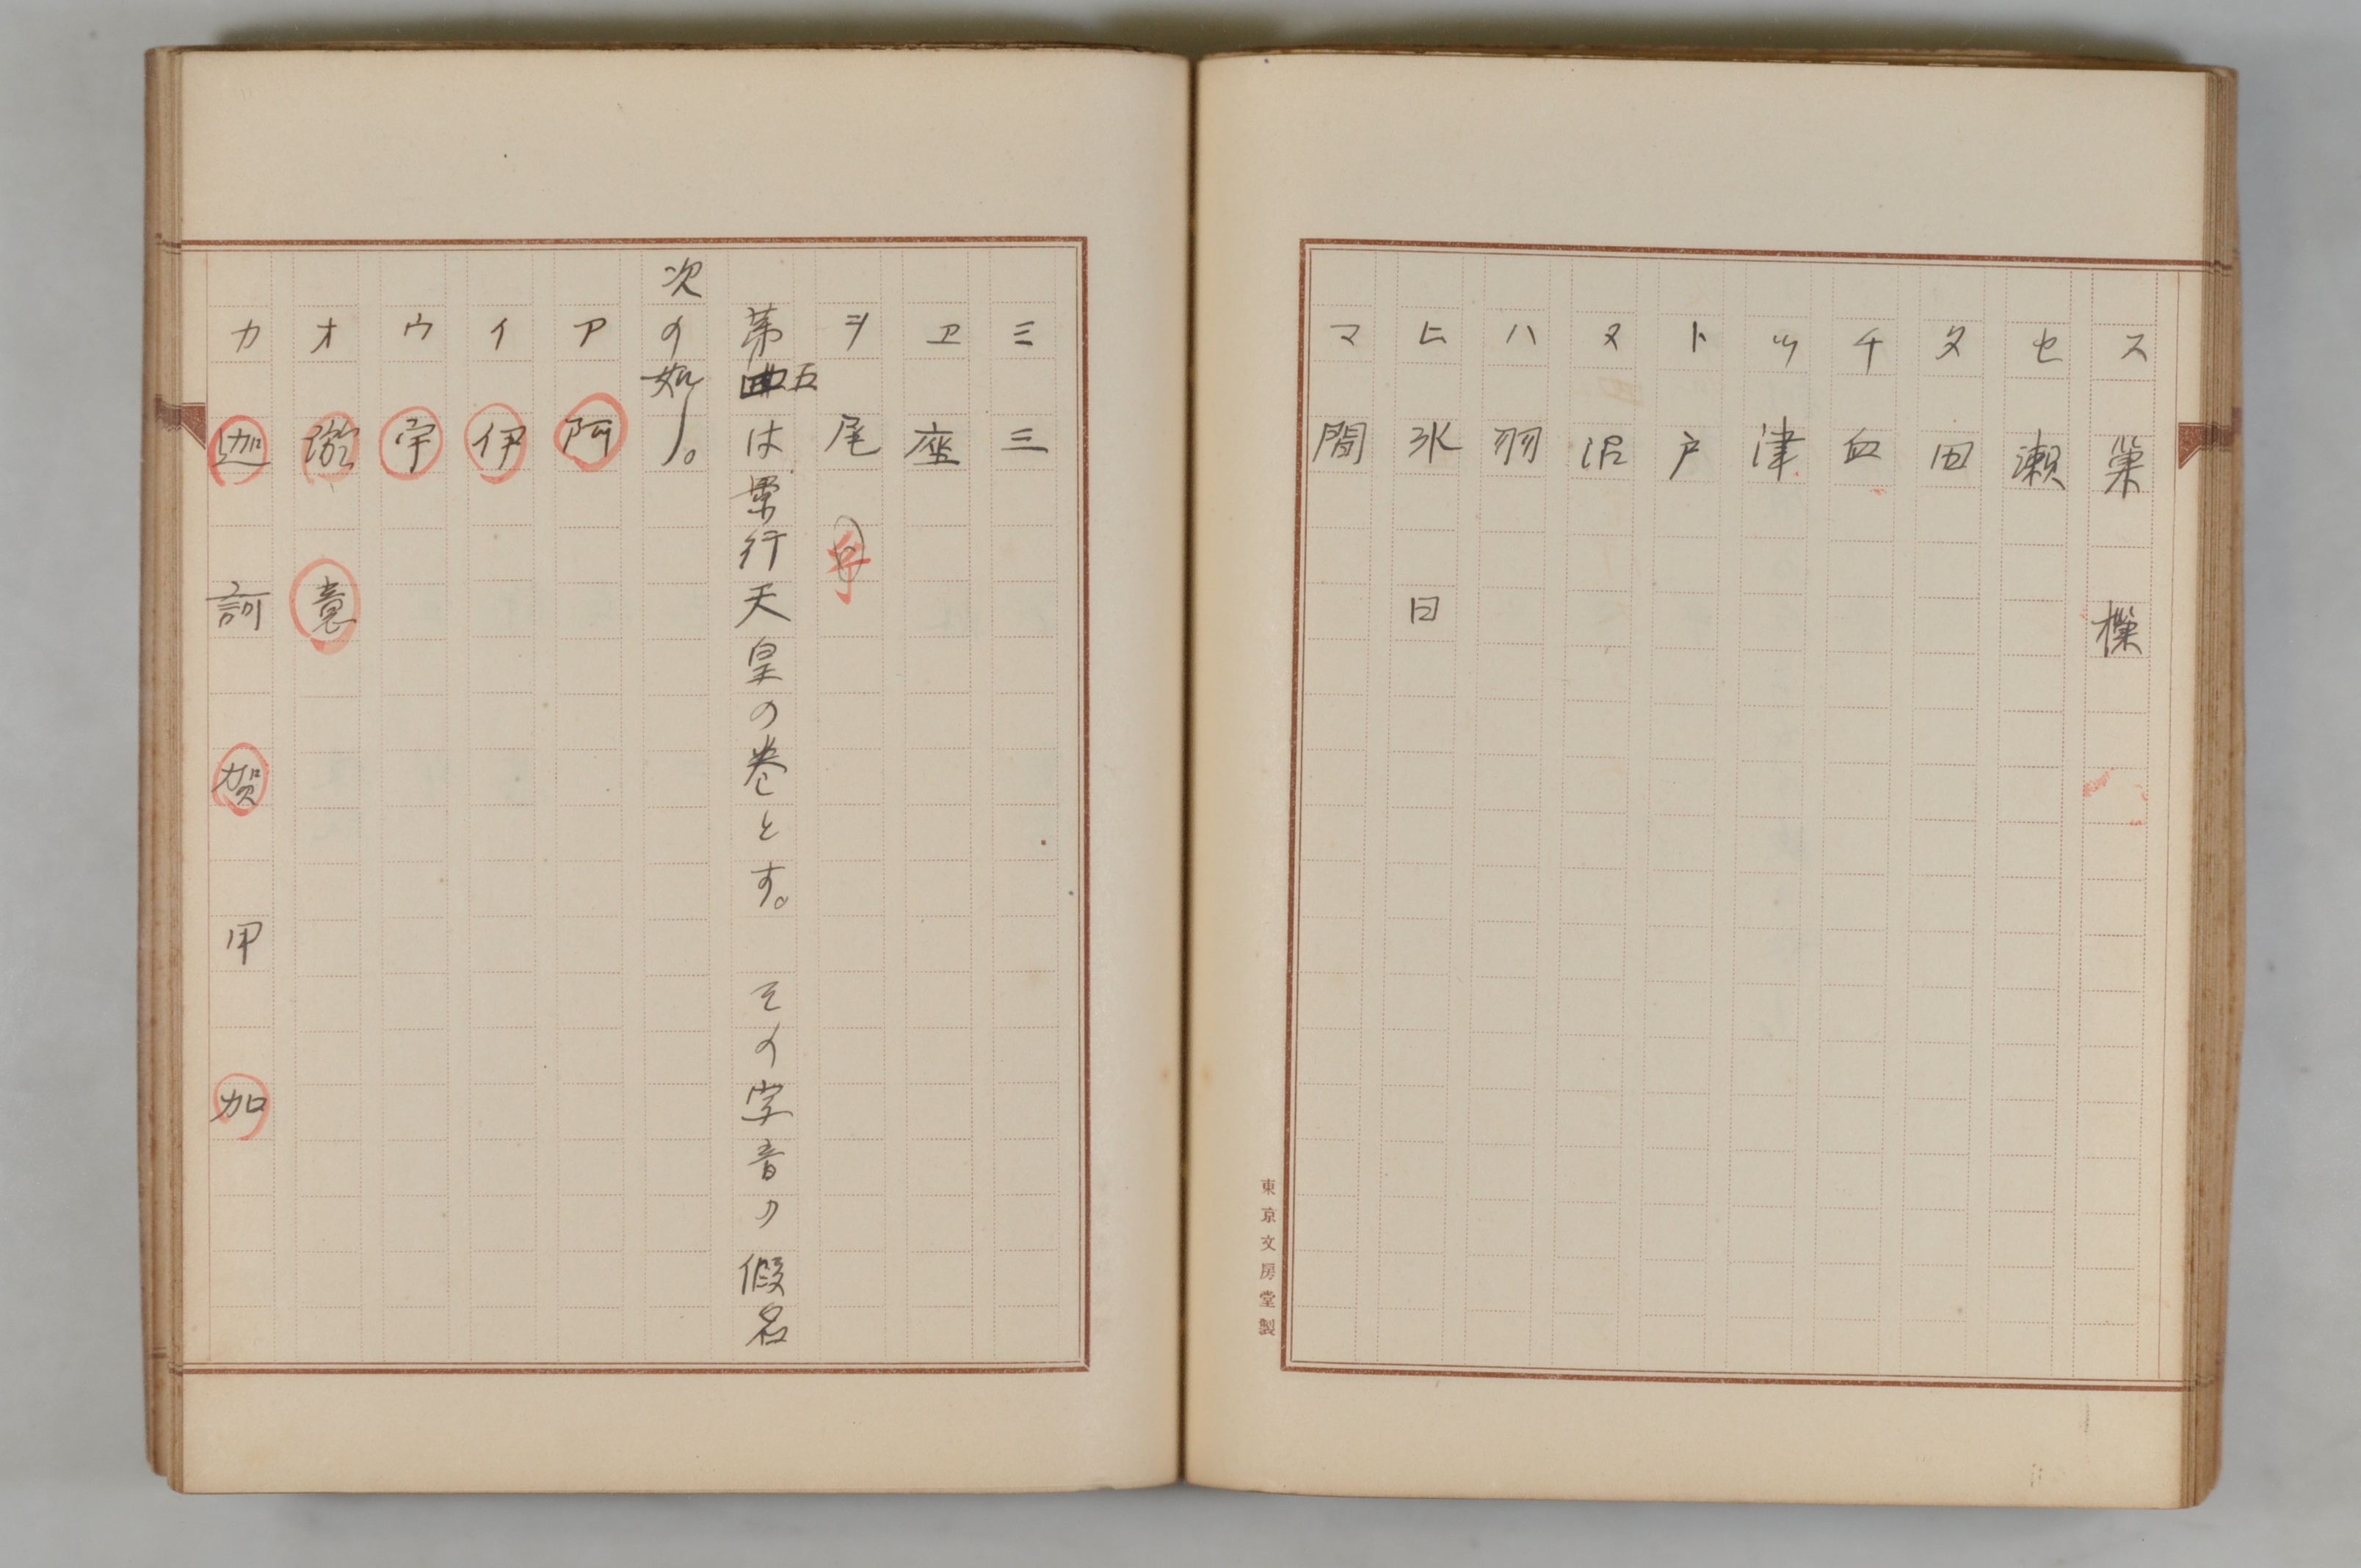 ス 巣 樔
セ 瀬
タ 田
チ 血
ツ 津
ト 戸
ヌ 沼
ハ 羽
ヒ 氷 日
マ 間
東京文房堂製
ミ 三
ヱ 座
ヲ 尾
第五は景行天皇の巻とす。 その字音の假名
次の如し。
ア 阿
イ 伊
ウ 宇
オ 意
カ 迦 訶 賀 甲 加